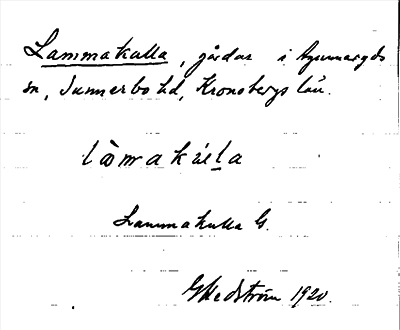 Lammakulla, gårdar i Agunnaryds
sn, Sunnerbo hd, Kronobergs län.
Lammakulla G.
GHedström 1920.